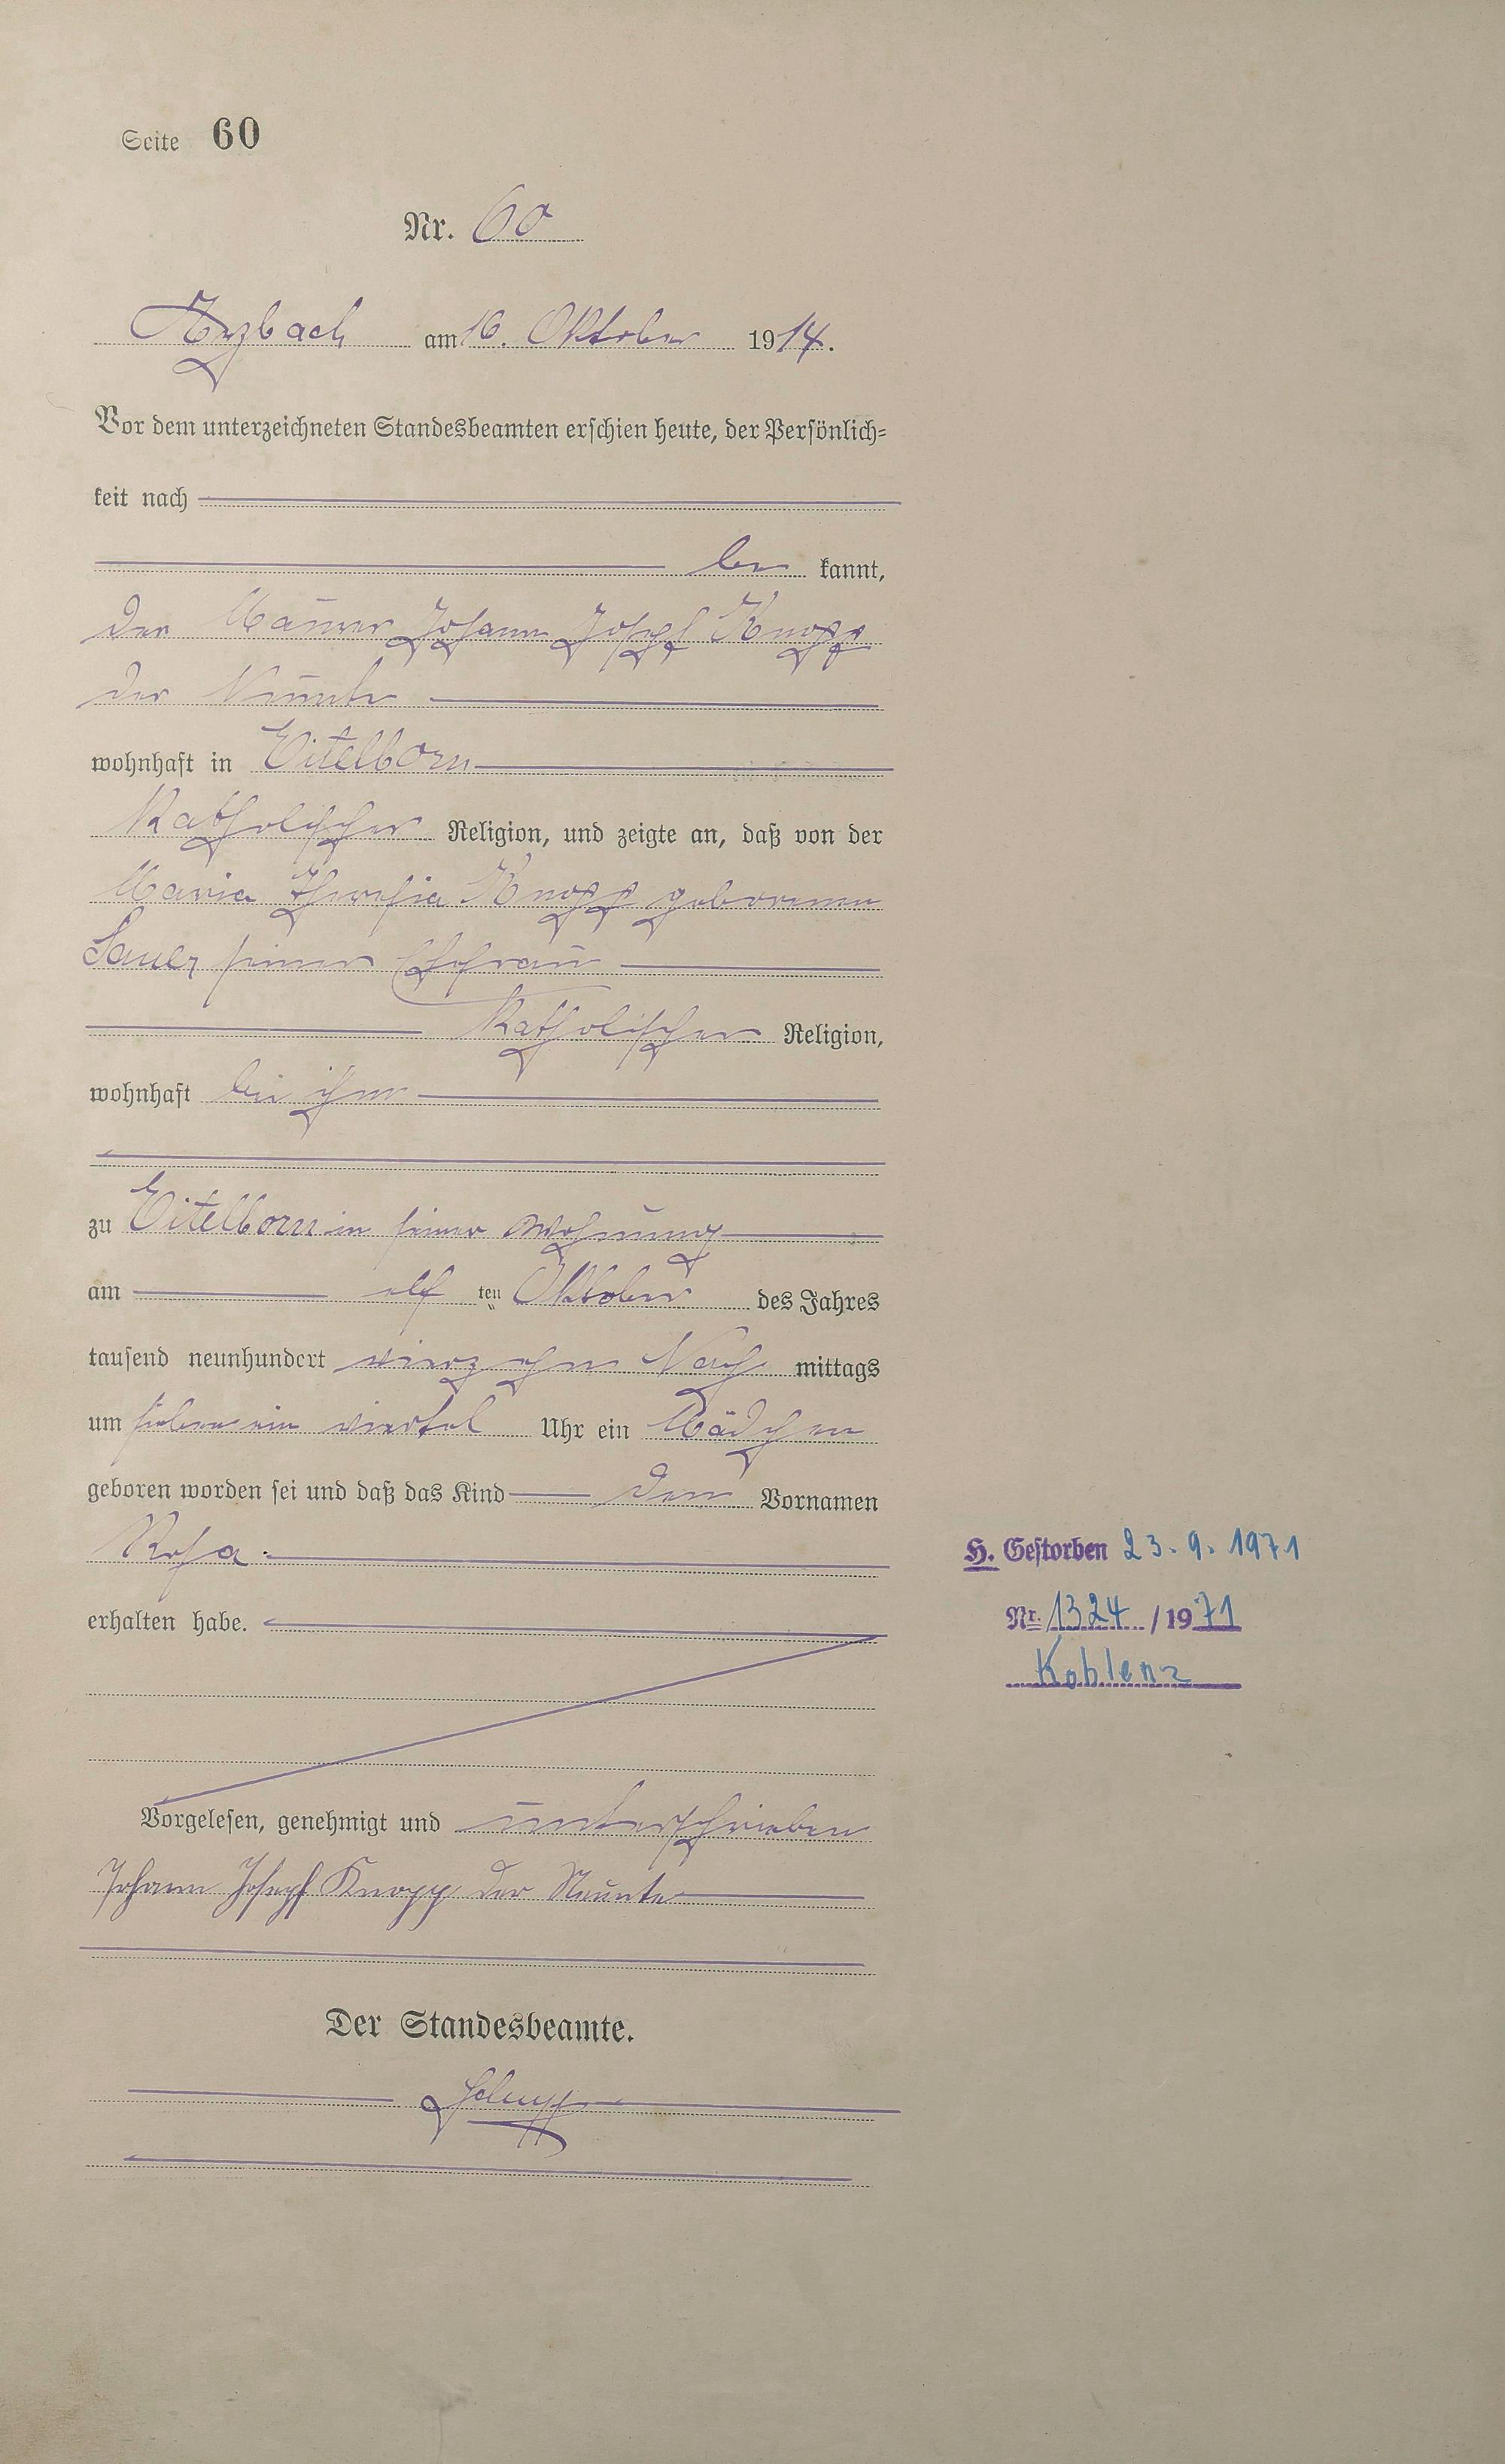 Seite 60
Nr. 60
Arzbach am 16. Oktober 1914.
Vor dem unterzeichneten Standesbeamten erschien heute, der Persönlich=
keit nach
be kannt,
der Maurer Johann Josef Knopp
der Neunte
wohnhaft in Eitelborn
Katholischer Religion, und zeigte an, daß von der
Maria Theresia Knopp geborenen
Sauer seiner Ehefrau
Katholischer Religion,
wohnhaft bei ihm
zu Eitelborn in seiner Wohnung
am elf ten Oktober des Jahres
tausend neunhundert vierzehn Nach mittags
um sieben ein viertel Uhr ein Mädchen
geboren worden sei und daß das Kind den Vornamen
Rosa
erhalten habe.
H. Gestorben 23.9.1971
Nr. 1324 / 1971
Koblenz
Vorgelesen, genehmigt und unterschrieben
Johann Josepf Knopp der Neunte
Der Standesbeamte.